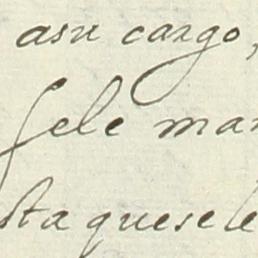 asu cargo,
sele man
sta quesele